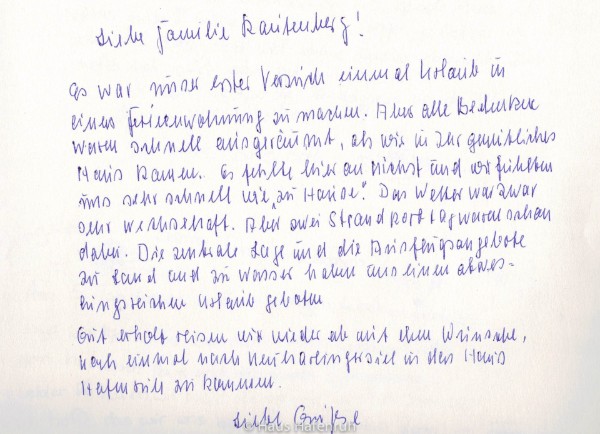 Liebe Familie Rautenberg!
Es war unser erster Versuch einmal Urlaub in
einer Ferienwohnung zu machen. Aber alle Bedenken
waren schnell ausgeräumt, als wir in Ihr gemütliches
Haus kamen. Es fehlte hier an nichts und wir fühlten
uns sehr schnell wie „zu Hause“. Das Wetter war zwar
sehr wechselhaft. Aber zwei Strandkorbtag waren schon
dabei. Die zentrale Lage und die Ausflugsangebote
zu Land und zu Wasser haben uns einen abwechs-
lungsreichen Urlaub geboten
Gut erholt reisen wir wieder ab mit dem Wunsche,
noch einmal nach Neuharlingersiel in das Haus
Hafenruh zu kommen.
Liebe Grüße
© Haus Hafenruh